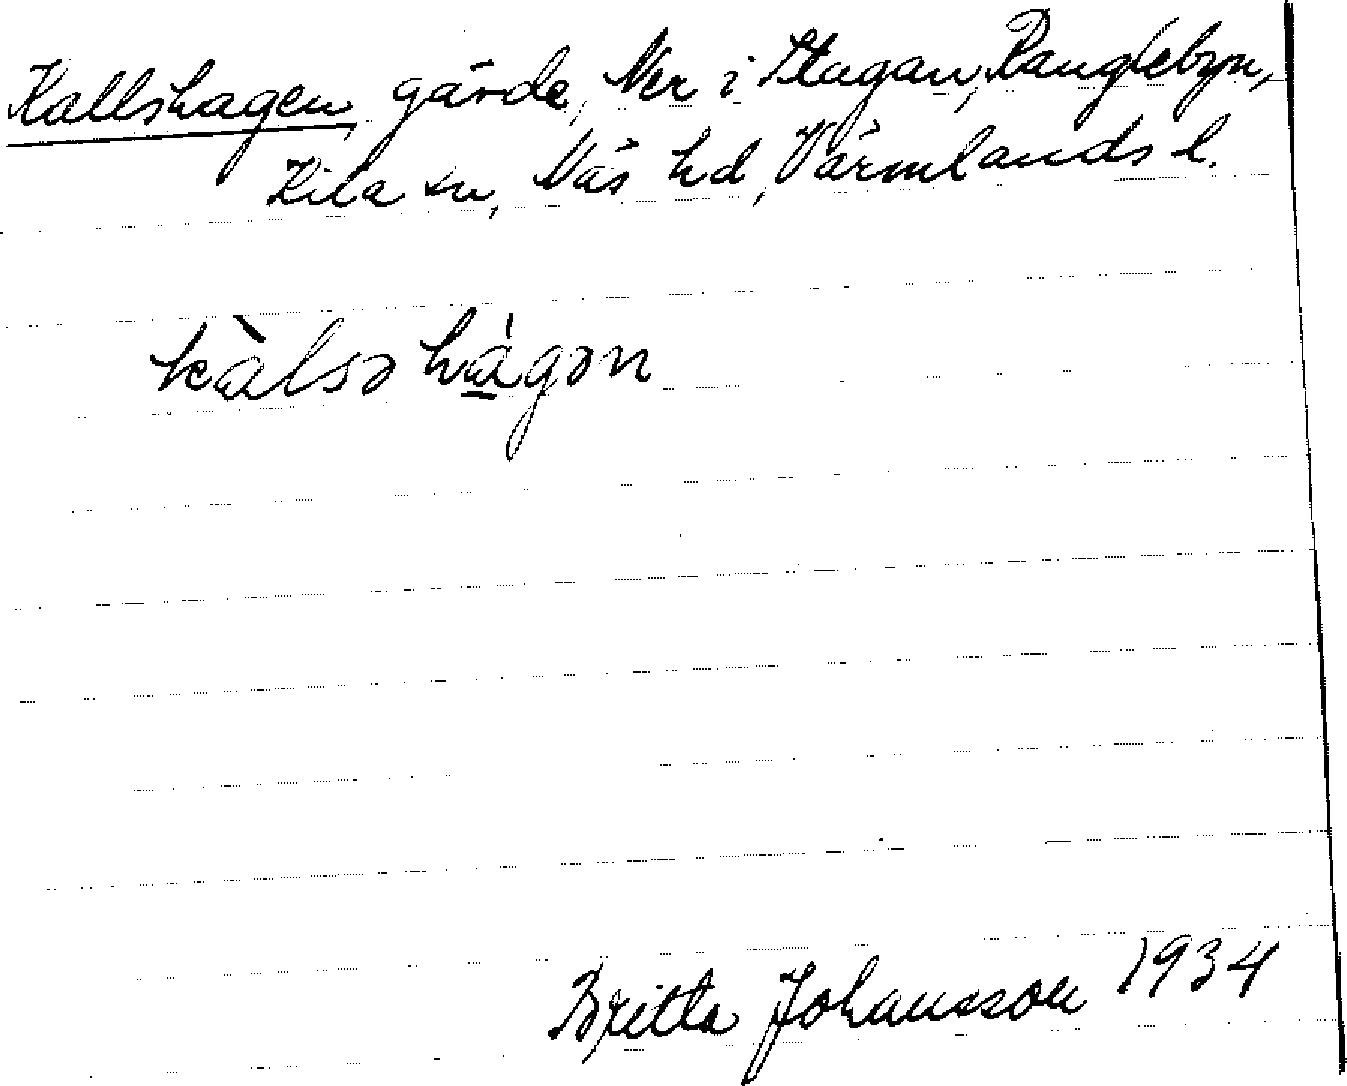 Kallshagen, gärde, Ner i Stugan, Ranglebyn,
Kila sn, Näs hd, Värmlands l.
kàlsə hágən
Britta Johansson 1934